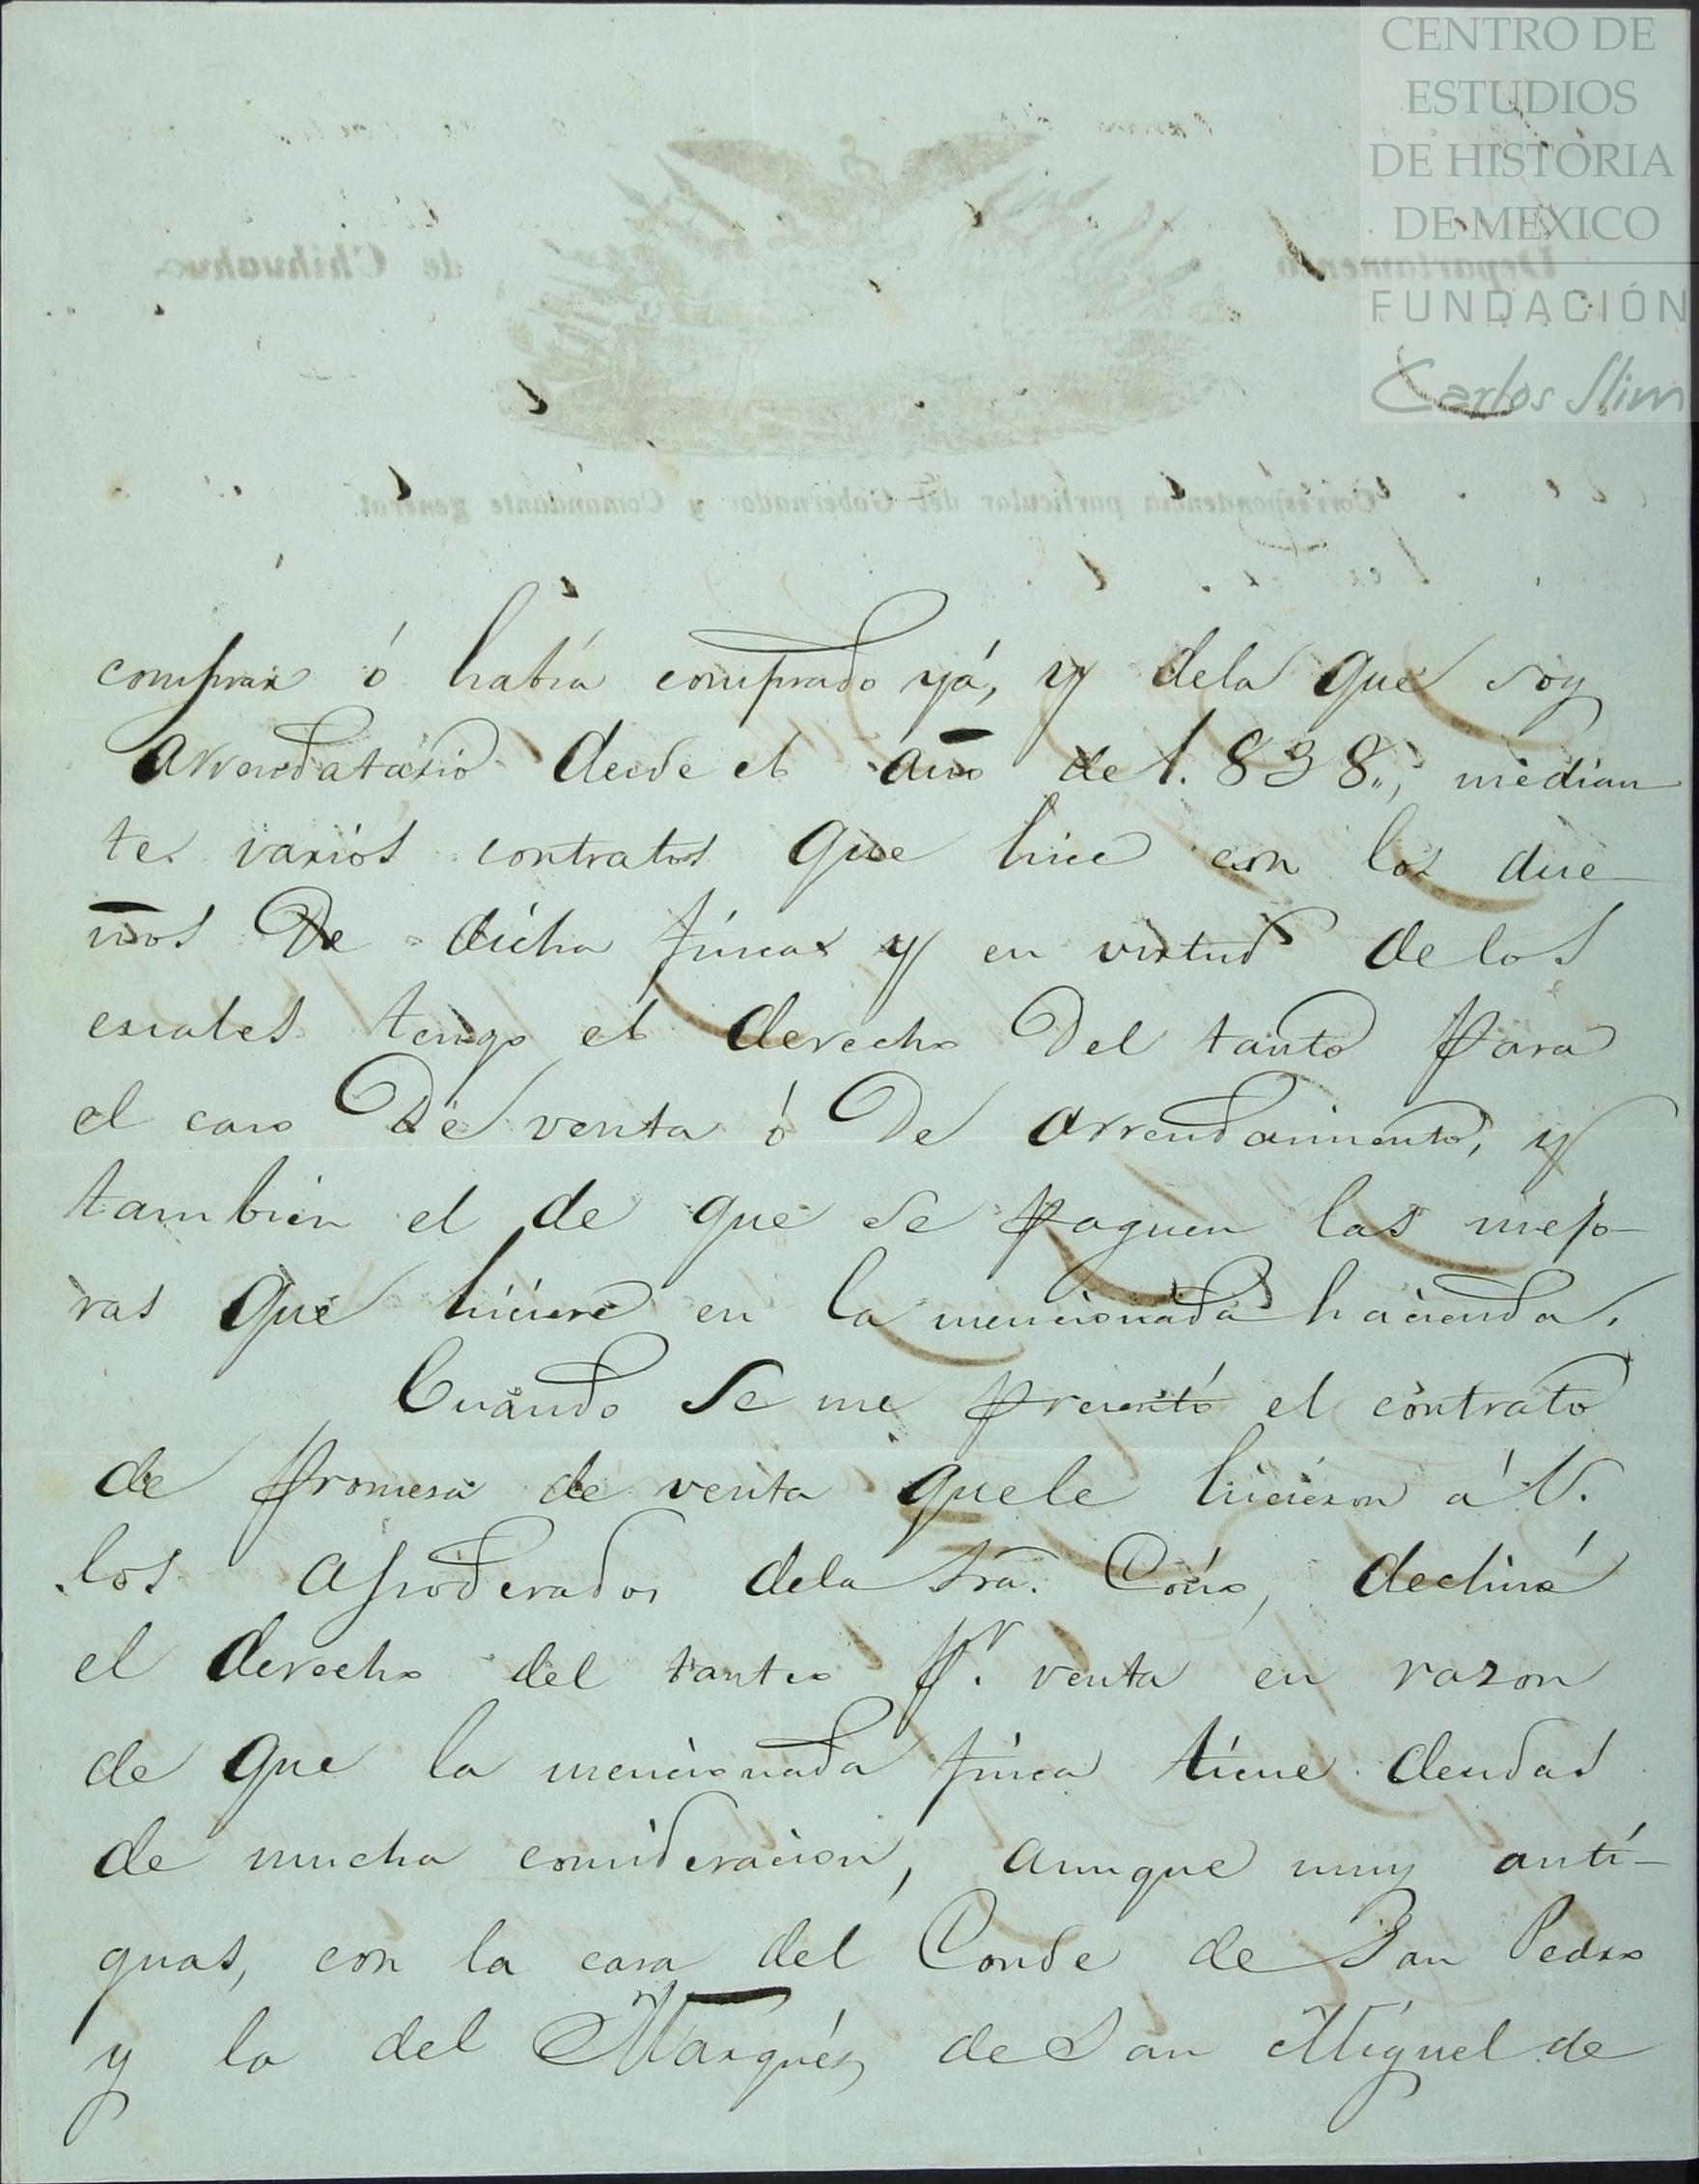 CENTRO DE
ESTUDIOS
DE HISTORIA
DE MEXICO
FUNDACIÓN
Carlos Slim
Departamento de Chihuahua.
Correspondencia particular del Gobernador y Comandante general.
comprar ó había comprado yá, y dela que soy
arrendatario desde el año de 1.838,, median
te varios contratos que hice con los due
ños De dicha finca y en virtud de los
cuales tengo el derecho Del tanto para
el caso De venta ó De arrendamiento, y
tambien el de que se paguen las mejo-
ras que hiciere en la mencionada hacienda.
Cuando se me presentó el contrato
de promesa de venta quele hicieron á V.
los apoderados dela Sra. Cosío, decliné
el derecho del tanteo pr. venta en razon
de que la mencionada finca tiene deudas
de mucha consideracion, aunque muy anti-
guas, con la casa del Conde de San Pedro
y la del Marqués de San Miguel de